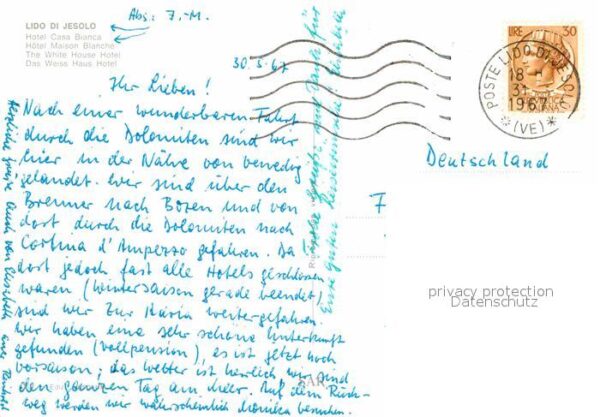 Abs.: F.-M.
LIDO DI JESOLO
Hotel Casa Bianca
Hôtel Maison Blanche
The White House Hotel
Das Weiss Haus Hotel
30.5.67
LIRE 30
POSTE LIDO DI JESOLO
18-
31.
1967
*(VE)*
Ihr Lieben!
Nach einer wunderbaren Fahrt
durch die Dolomiten sind wir
hier in der Nähe von Venedig
gelandet. Wir sind über den
Brenner nach Bozen und von
dort durch die Dolomiten nach
Cortina d'Ampezzo gefahren. Da
dort jedoch fast alle Hotels geschlossen
waren (Wintersaison gerade beendet)
sind wir zur Adria weitergefahren.
Wir haben eine sehr schöne Unterkunft
gefunden (Vollpension), es ist jetzt noch
Vorsaison; das Wetter ist herrlich wir sind
den ganzen Tag am Meer. Auf dem Rück-
weg werden wir wahrscheinlich Monika besuchen.
Herzliche Grüße auch von Elisabeth Euer Reinhold
Frohe Grüße und Dank für
Eure guten
Deutschland
F
privacy protection
Datenschutz